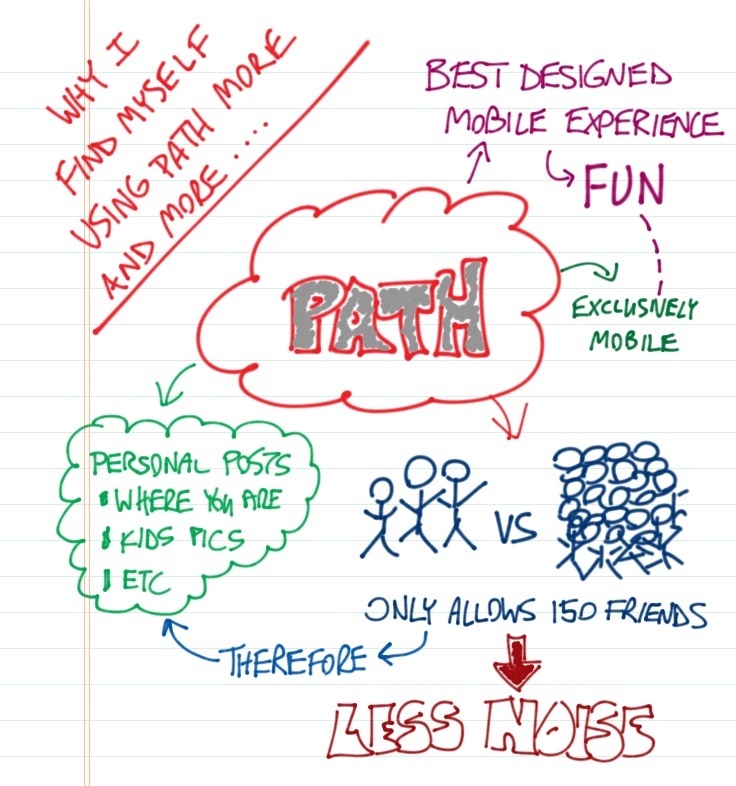 WHY I
FIND MYSELF
USING PATH MORE
AND MORE....
BEST DESIGNED
MOBILE EXPERIENCE
FUN
PATH
EXCLUSIVELY
MOBILE
PERSONAL POSTS
WHERE YOU ARE
KIDS PICS
ETC
VS
ONLY ALLOWS 150 FRIENDS
THEREFORE
LESS NOISE